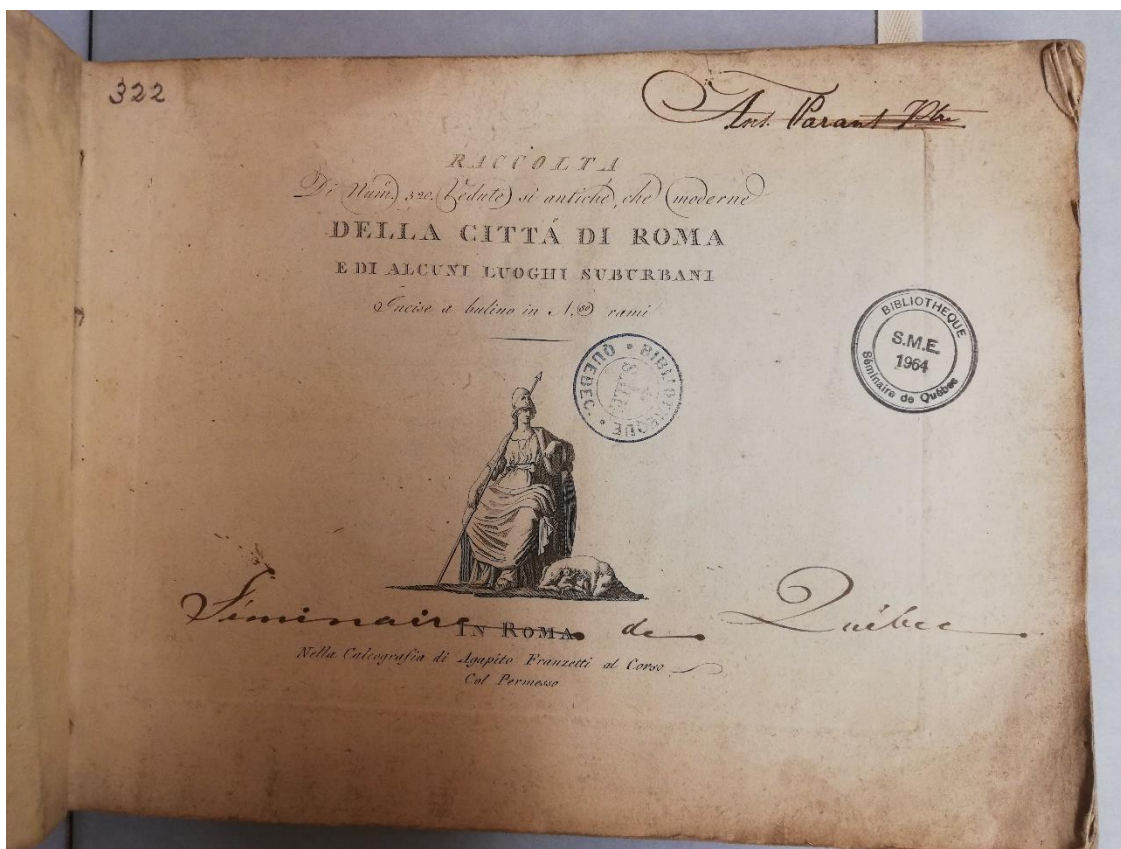 322
Ant. Parant Ptre
RACCOLTA
Di Num. 320. Vedute si antiche, che moderne
DELLA CITTÁ DI ROMA
E DI ALCUNI LUOGHI SUBURBANI
Incise a bulino in N. 80 rami
BIBLIOTHEQUE
S.M.E.
1964
Séminaire de Québec
BIBLIOTHEQUE
QUEBEC
Séminaire de Québec
IN ROMA
Nella Calcografia di Agapito Franzetti al Corso
Col Permesso